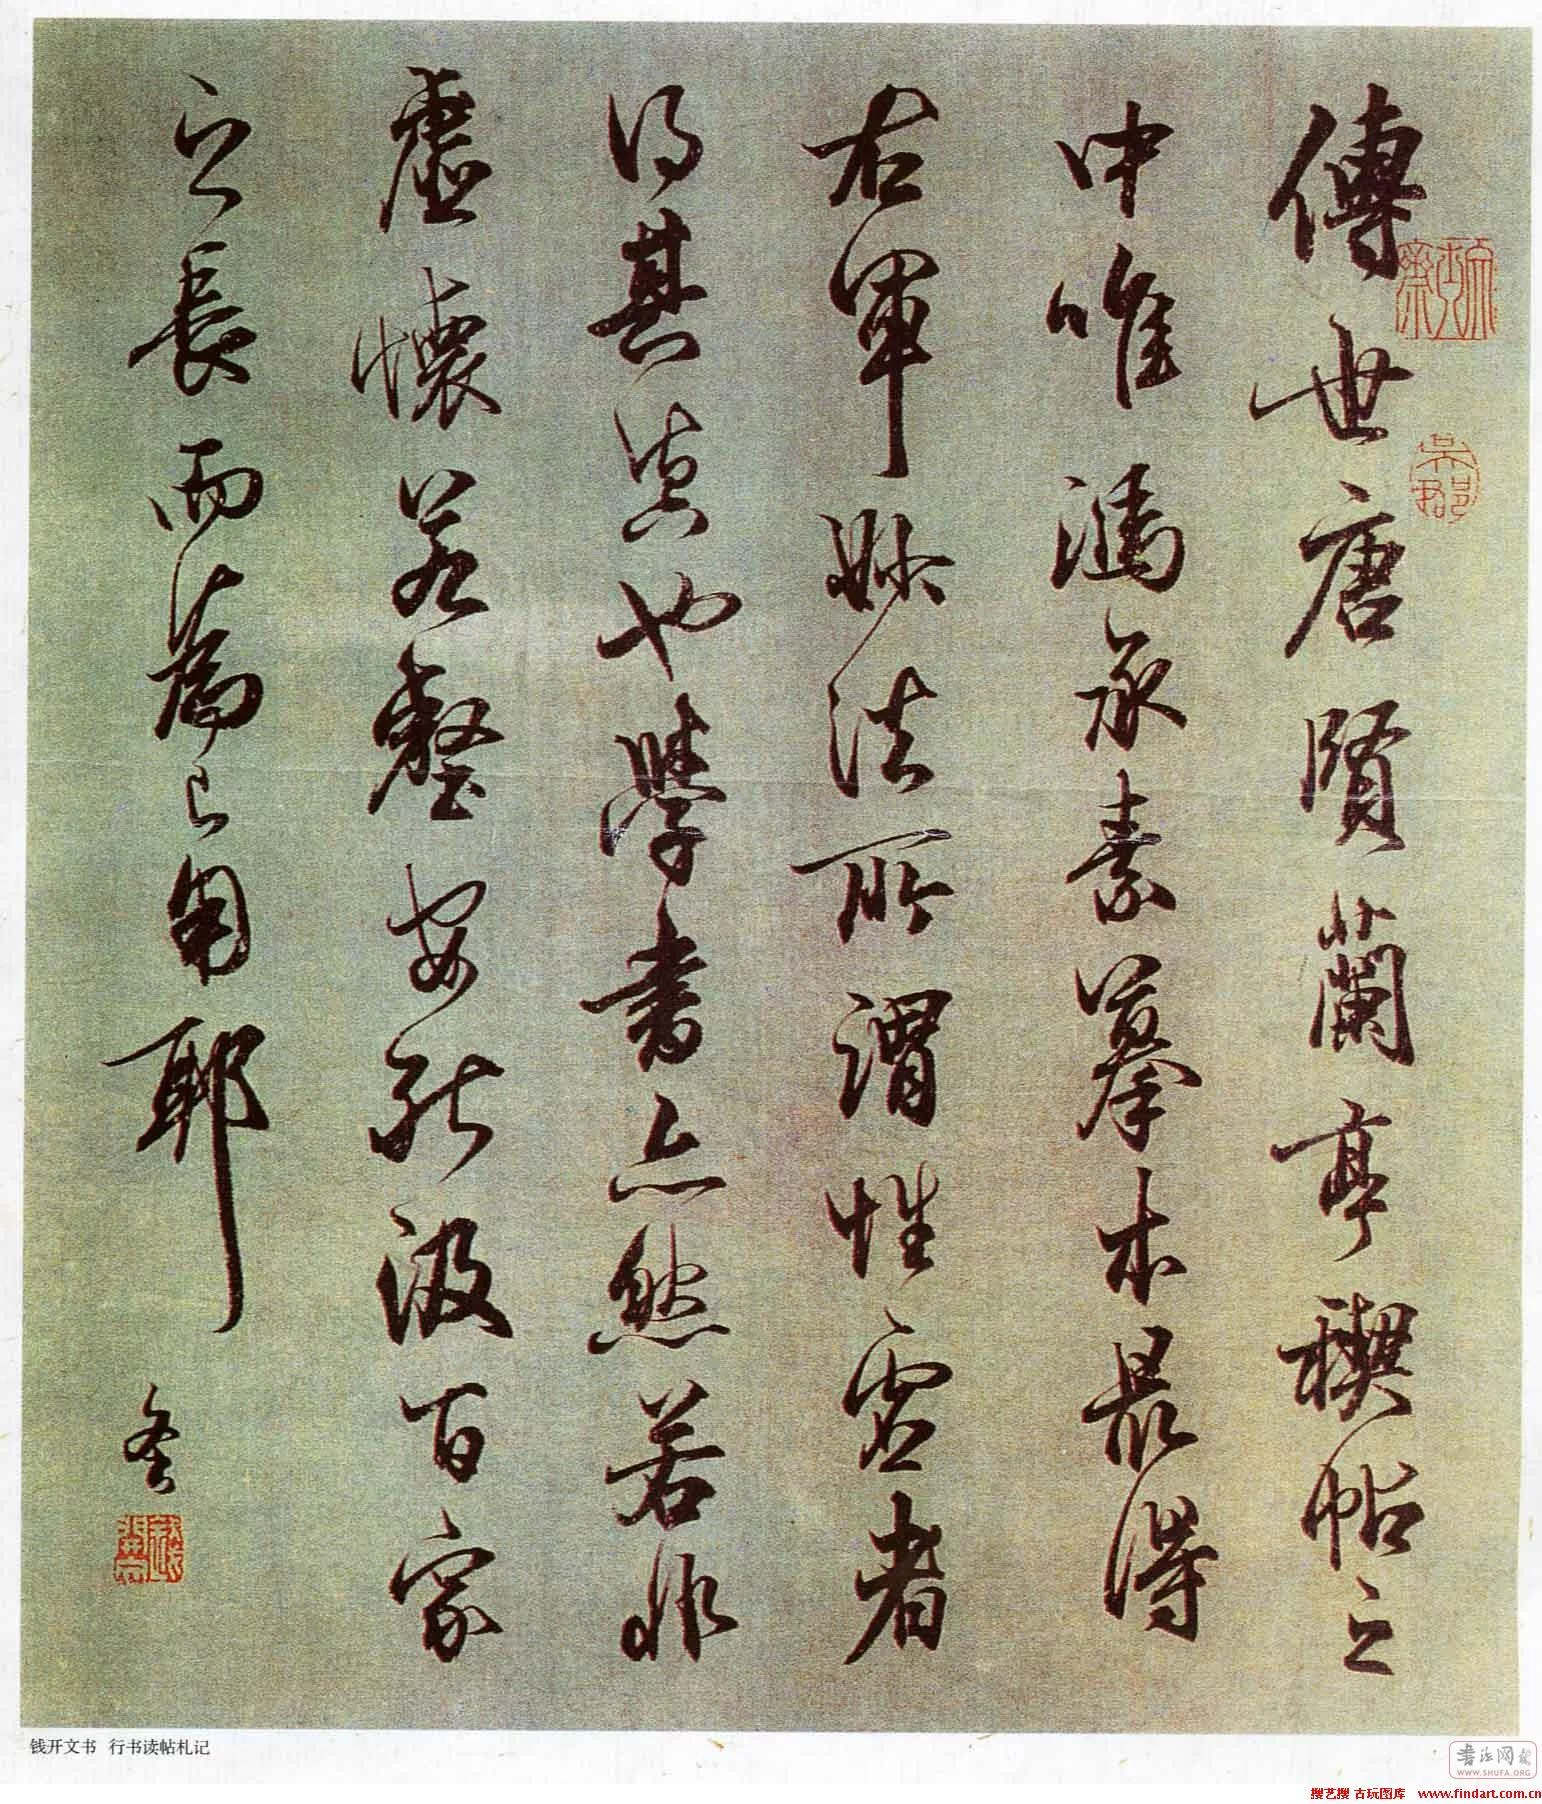 傳世唐賢蘭亭禊帖之
中唯馮承素摹本最得
右軍妙法所謂惟虛者
得其真也學書亦然若非
虛懷若壑安能汲百家
之長而為己用耶
吳郡
钱开文书 行书读帖札记
书法网
WWW.SHUFA.ORG
搜艺搜 古玩图库 www.findart.com.cn